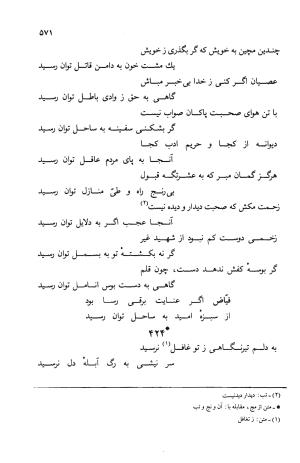 ۵۷۱
چندین مچین به خویش که گر بگذری ز خویش
یك مشت خون به دامن قاتل توان رسید
عصیان اگر کنی ز خدا بی‌خبر مباش
گاهی به حق ز وادی باطل توان رسید
با تن هوای صحبت پاکان صواب نیست
گر بشکنی سفینه به ساحل توان رسید
دیوانه از کجا و حریم ادب کجا
آنجا به پای مردم عاقل توان رسید
هرگز گمان مبر که به عشرتگه قبول
بی‌رنج راه و طیّ منازل توان رسید
زحمت مکش که صحبت دیدار و دیده نیست(۲)
آنجا عجب اگر به دلایل توان رسید
زخمی دوست کم نبود از شهید غیر
گر نه بکشته تو به بسمل توان رسید
گر بوسه کفش ندهد دست، چون قلم
گاهی به دست بوس انامل توان رسید
فیّاض اگر عنایت برقی رسا بود
از سبزهٔ امید به ساحل توان رسید
*۴۲۴
به دلم تیرنگاهی ز تو غافل(۱) نرسید
سر نیشی به رگ آبلهٔ دل نرسید
(۲) - تب: دیدار دیدنیست
* - متن از مج، مقابله با: آن و نج و تب
(۱) - متن: ز تغافل